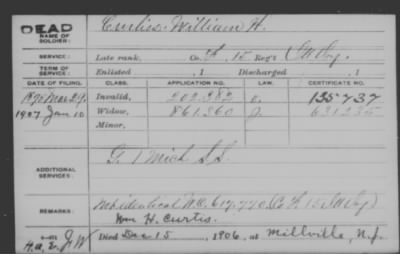 DEAD
NAME OF SOLDIER:
Curtiss, William H.
SERVICE:
Late rank, Co. H, 15 Reg't Ill. Cav.
TERM OF SERVICE:
Enlisted , 1 Discharged , 1
DATE OF FILING. CLASS. APPLICATION NO. LAW. CERTIFICATE NO.
Invalid, 202.382 135737
1907 Jan 10 Widow, 861.360 631235
Minor,
ADDITIONAL SERVICES:
G. 1 Mich S.S.
REMARKS:
Not identical
Wm H. Curtis.
Died Dec 15, 1906, at Millville, N.J.